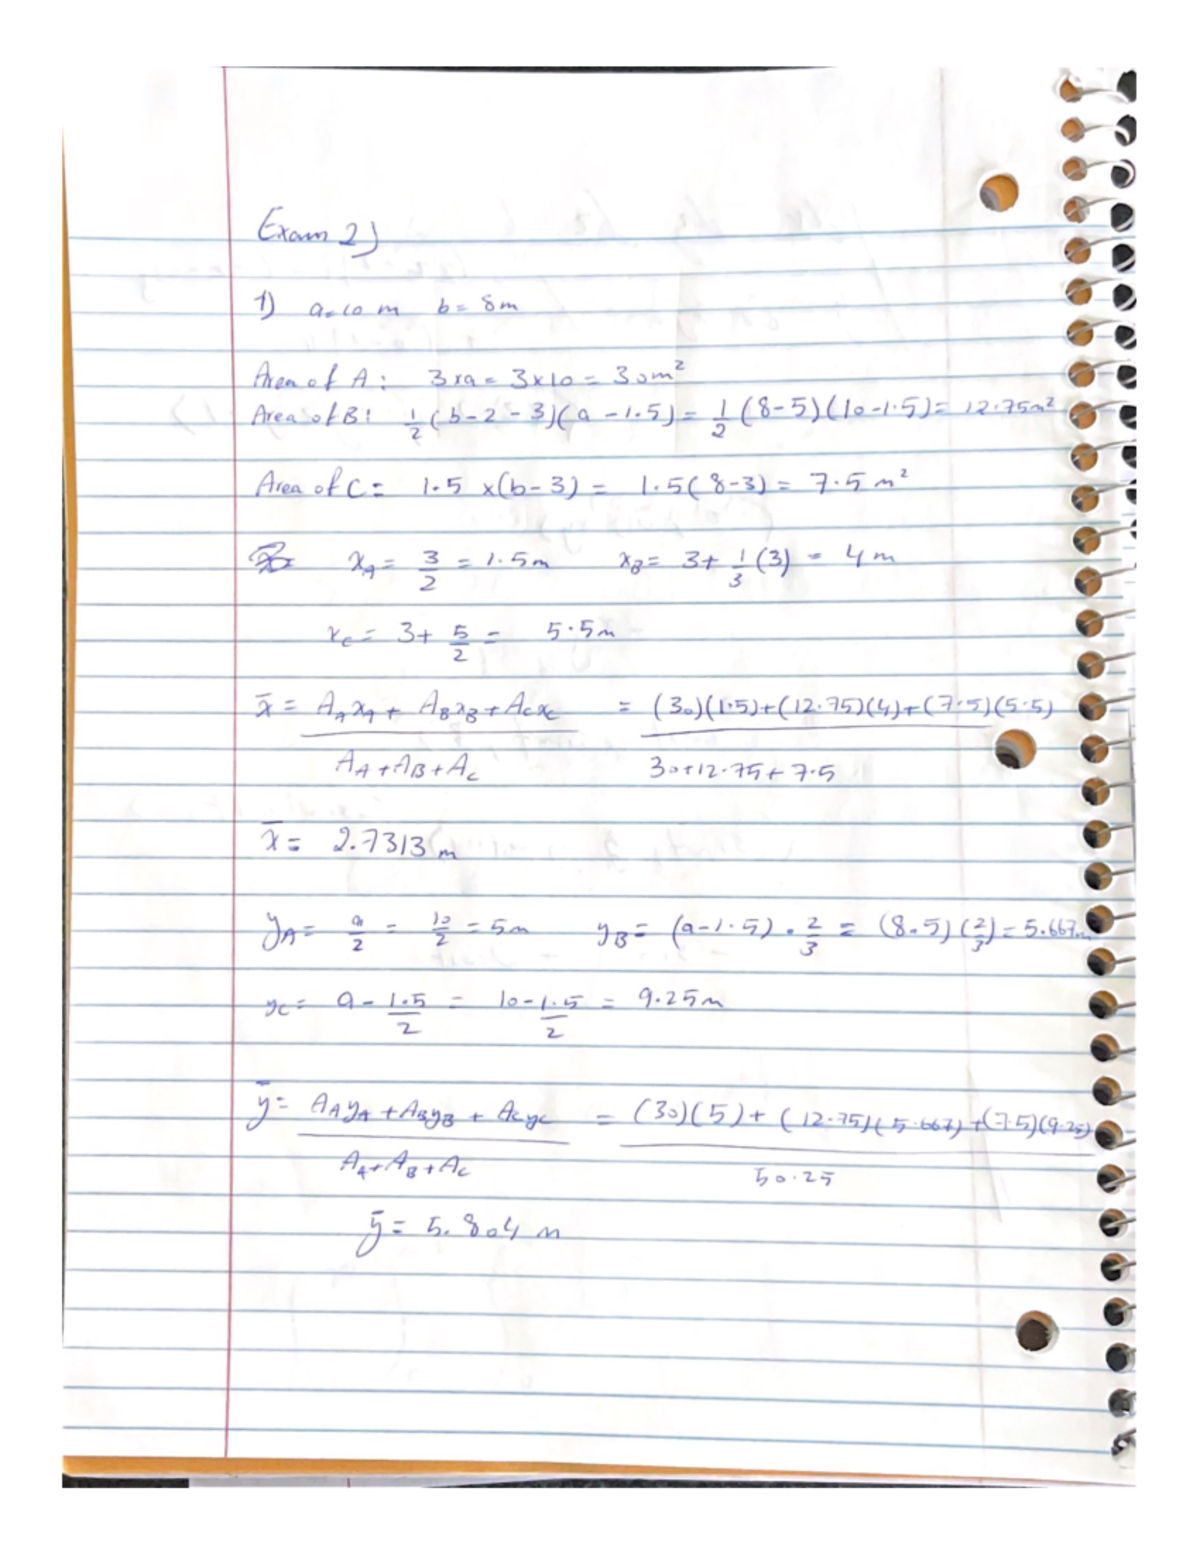 Exam 2)
1) a=10 m b= 8m
Area of A: 3xa = 3x10 = 30m²
Area of B: 1/2 (b-2-3)(a-1.5) = 1/2 (8-5)(10-1.5) = 12.75m²
Area of C= 1.5 x(b-3) = 1.5(8-3) = 7.5 m²
x_A = 3/2 = 1.5m x_B = 3+ 1/3 (3) = 4 m
x_C = 3+ 5/2 = 5.5m
x̄ = (A_A x_A + A_B x_B + A_C x_C)/(A_A + A_B + A_C) = ((30)(1.5)+(12.75)(4)+(7.5)(5.5))/(30+12.75+7.5)
x̄ = 2.7313 m
y_A = a/2 = 10/2 = 5m y_B = (a-1.5) · 2/3 = (8.5)(2/3) = 5.667m
y_C = a - 1.5/2 = 10 - 1.5/2 = 9.25m
ȳ = (A_A y_A + A_B y_B + A_C y_C)/(A_A + A_B + A_C) = ((30)(5)+(12.75)(5.667)+(7.5)(9.25))/50.25
ȳ = 5.804 m